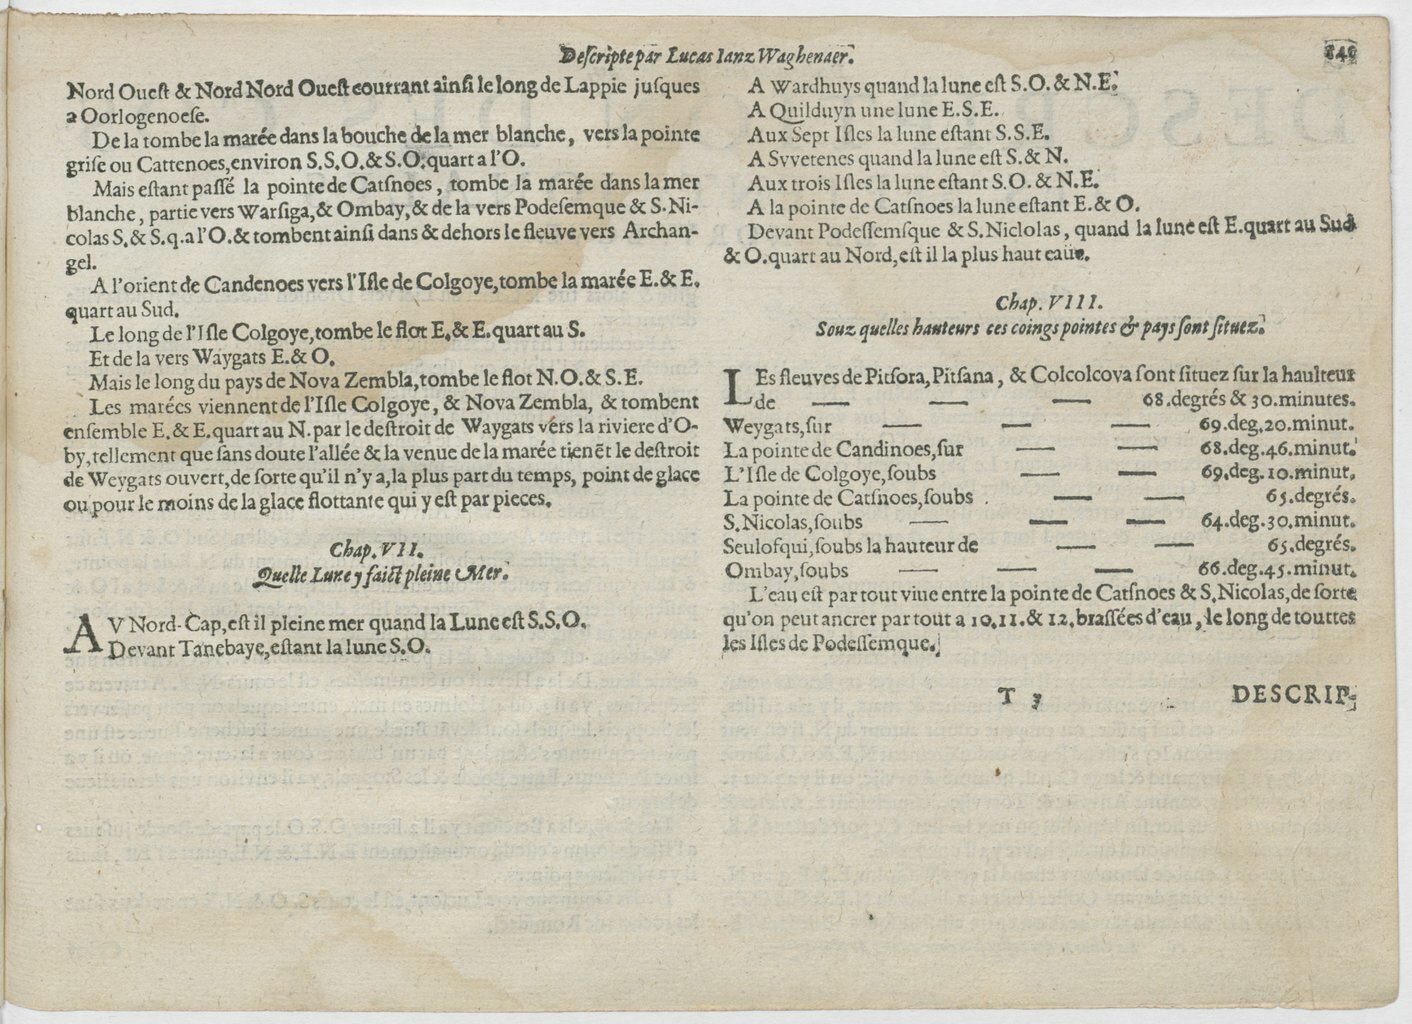 Descripte par Lucas Ianz Waghenaer.
Nord Ouest & Nord Nord Ouest courrant ainsi le long de Lappie jusques
a Oorlogenoese.
De la tombe la marée dans la bouche de la mer blanche, vers la pointe
grise ou Cattenoes, environ S.S.O. & S.O. quart a l'O.
Mais estant passé la pointe de Catsnoes, tombe la marée dans la mer
blanche, partie vers Warsiga, & Ombay, & de la vers Podesemque & S. Ni-
colas S. & S.q. a l'O. & tombent ainsi dans & dehors le fleuve vers Archan-
gel.
A l'orient de Candenoes vers l'Isle de Colgoye, tombe la marée E. & E.
quart au Sud.
Le long de l'Isle Colgoye, tombe le flot E. & E. quart au S.
Et de la vers Waygats E. & O.
Mais le long du pays de Nova Zembla, tombe le flot N.O. & S.E.
Les marées viennent de l'Isle Colgoye, & Nova Zembla, & tombent
ensemble E. & E. quart au N. par le destroit de Waygats vers la riviere d'O-
by, tellement que sans doute l'allée & la venue de la marée tienẽt le destroit
de Weygats ouvert, de sorte qu'il n'y a, la plus part du temps, point de glace
ou pour le moins de la glace flottante qui y est par pieces.
Chap. VII.
Quelle Lune y faict pleine Mer.
AV Nord-Cap, est il pleine mer quand la Lune est S.S.O.
Devant Tanebaye, estant la lune S.O.
A Wardhuys quand la lune est S.O. & N.E.
A Quilduyn une lune E.S.E.
Aux Sept Isles la lune estant S.S.E.
A Svvetenes quand la lune est S. & N.
Aux trois Isles la lune estant S.O. & N.E.
A la pointe de Catsnoes la lune estant E. & O.
Devant Podessemsque & S. Niclolas, quand la lune est E. quart au Sud
& O. quart au Nord, est il la plus haut eaüe.
Chap. VIII.
Souz quelles hauteurs ces coings pointes & pays sont situez.
LEs fleuves de Pitsora, Pitsana, & Colcolcova sont situez sur la haulteur
de — — — 68. degrés & 30. minutes.
Weygats, sur — — — 69. deg. 20. minut.
La pointe de Candinoes, sur — — 68. deg. 46. minut.
L'Isle de Colgoye, soubs — — 69. deg. 10. minut.
La pointe de Catsnoes, soubs — — 65. degrés.
S. Nicolas, soubs — — — 64. deg. 30. minut.
Seulofqui, soubs la hauteur de — — 65. degrés.
Ombay, soubs — — — 66. deg. 45. minut.
L'eau est par tout vive entre la pointe de Catsnoes & S. Nicolas, de sorte
qu'on peut ancrer par tout a 10. 11. & 12. brassées d'eau, le long de touttes
les Isles de Podessemque.
T 3
DESCRIP-